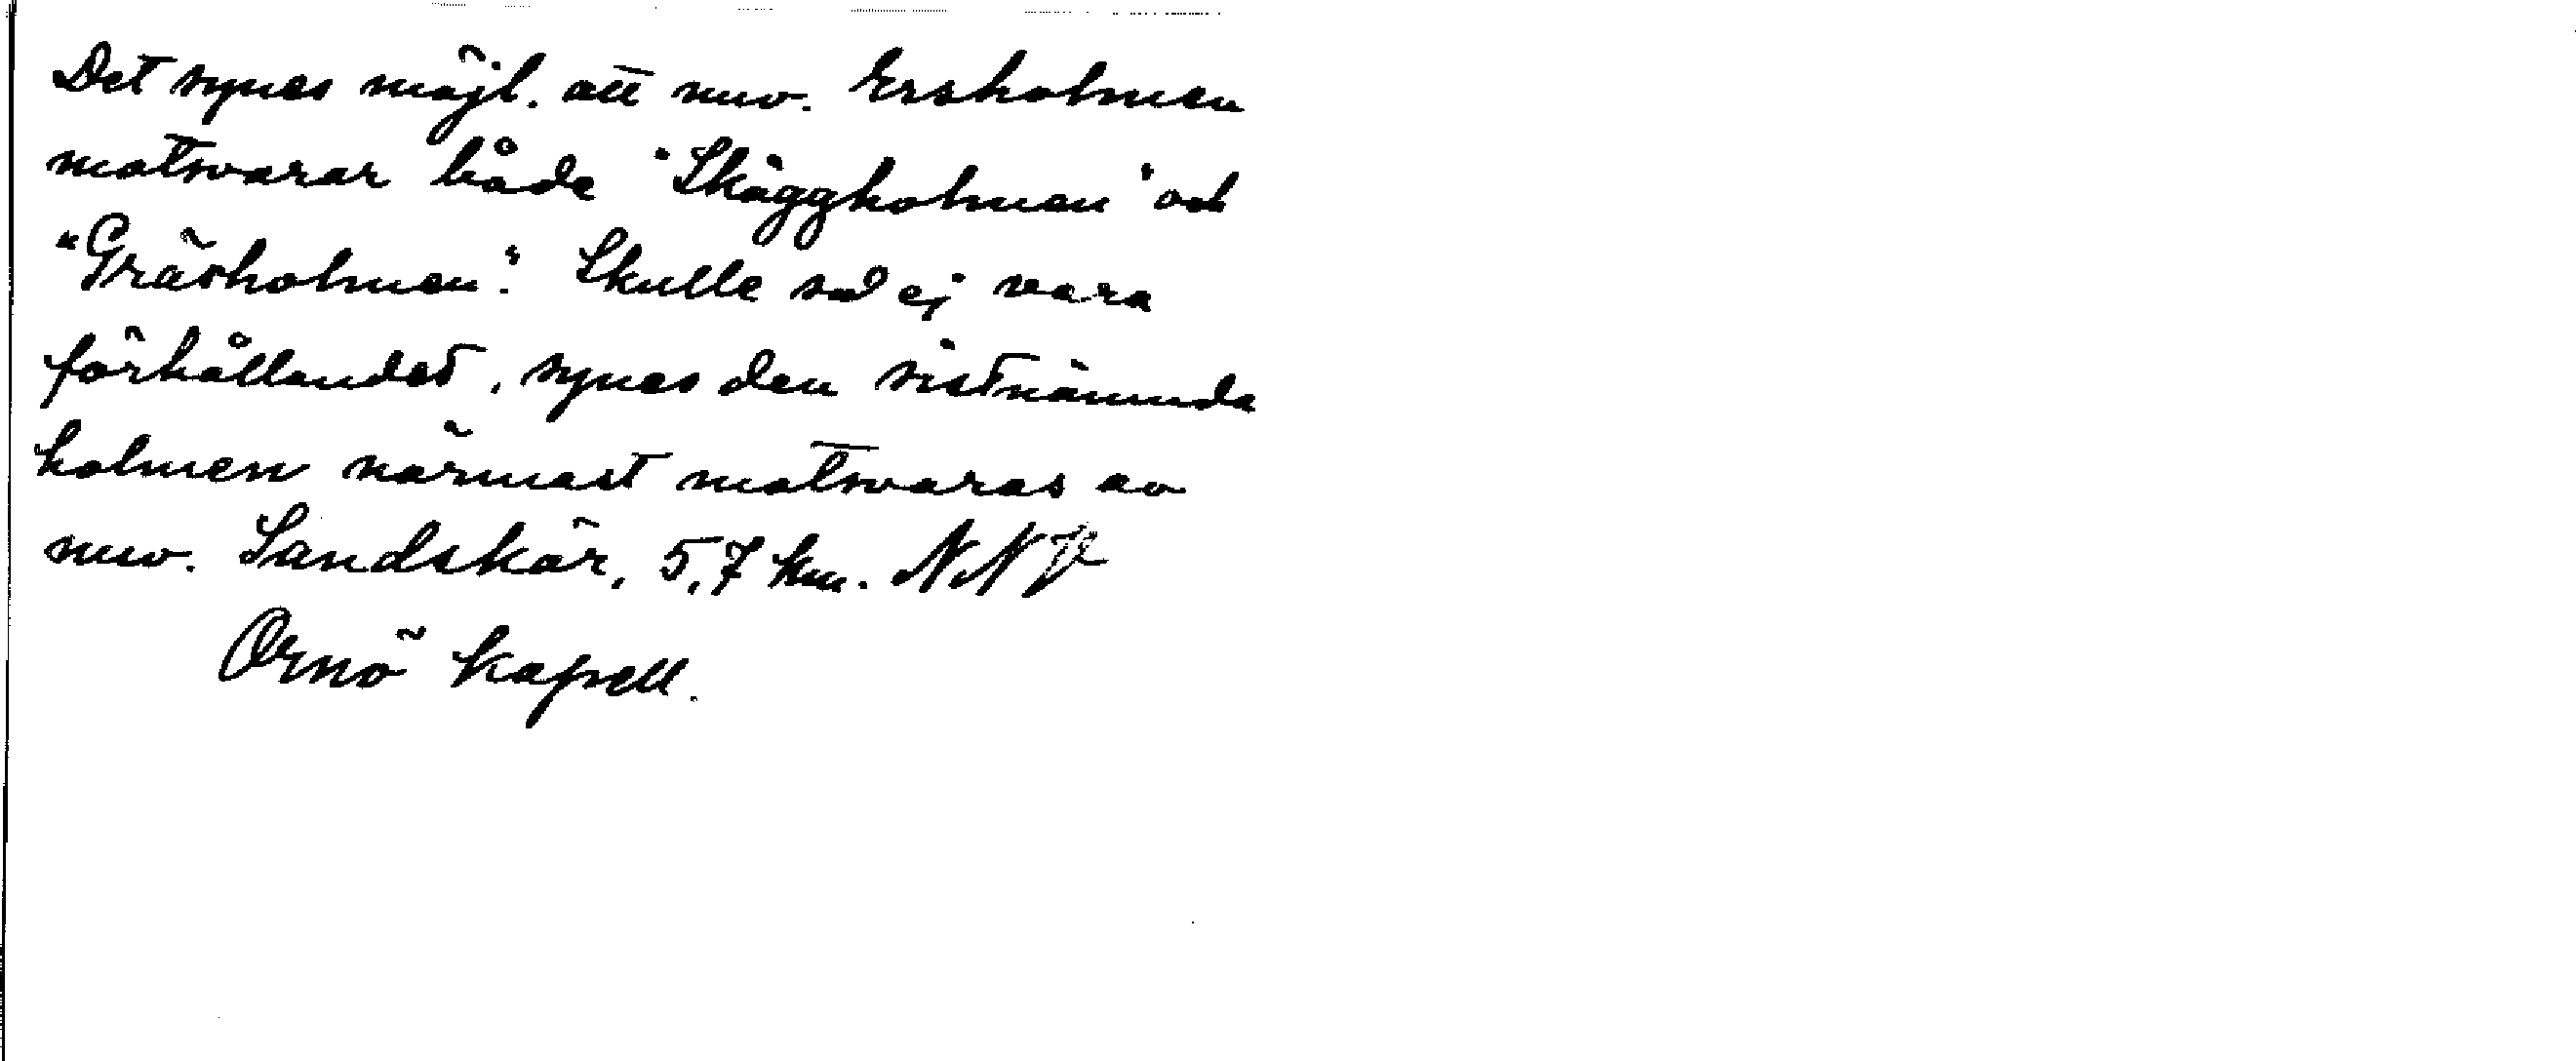 Det synes möjl. att nuv. Ersholmen
motsvarar både "Skäggholmen" och
"Gräsholmen". Skulle så ej vara
förhållandet, synes den sistnämnda
holmen närmast motsvaras av
nuv. Sandskär, 5,7 km. NNV
Ornö kapell.